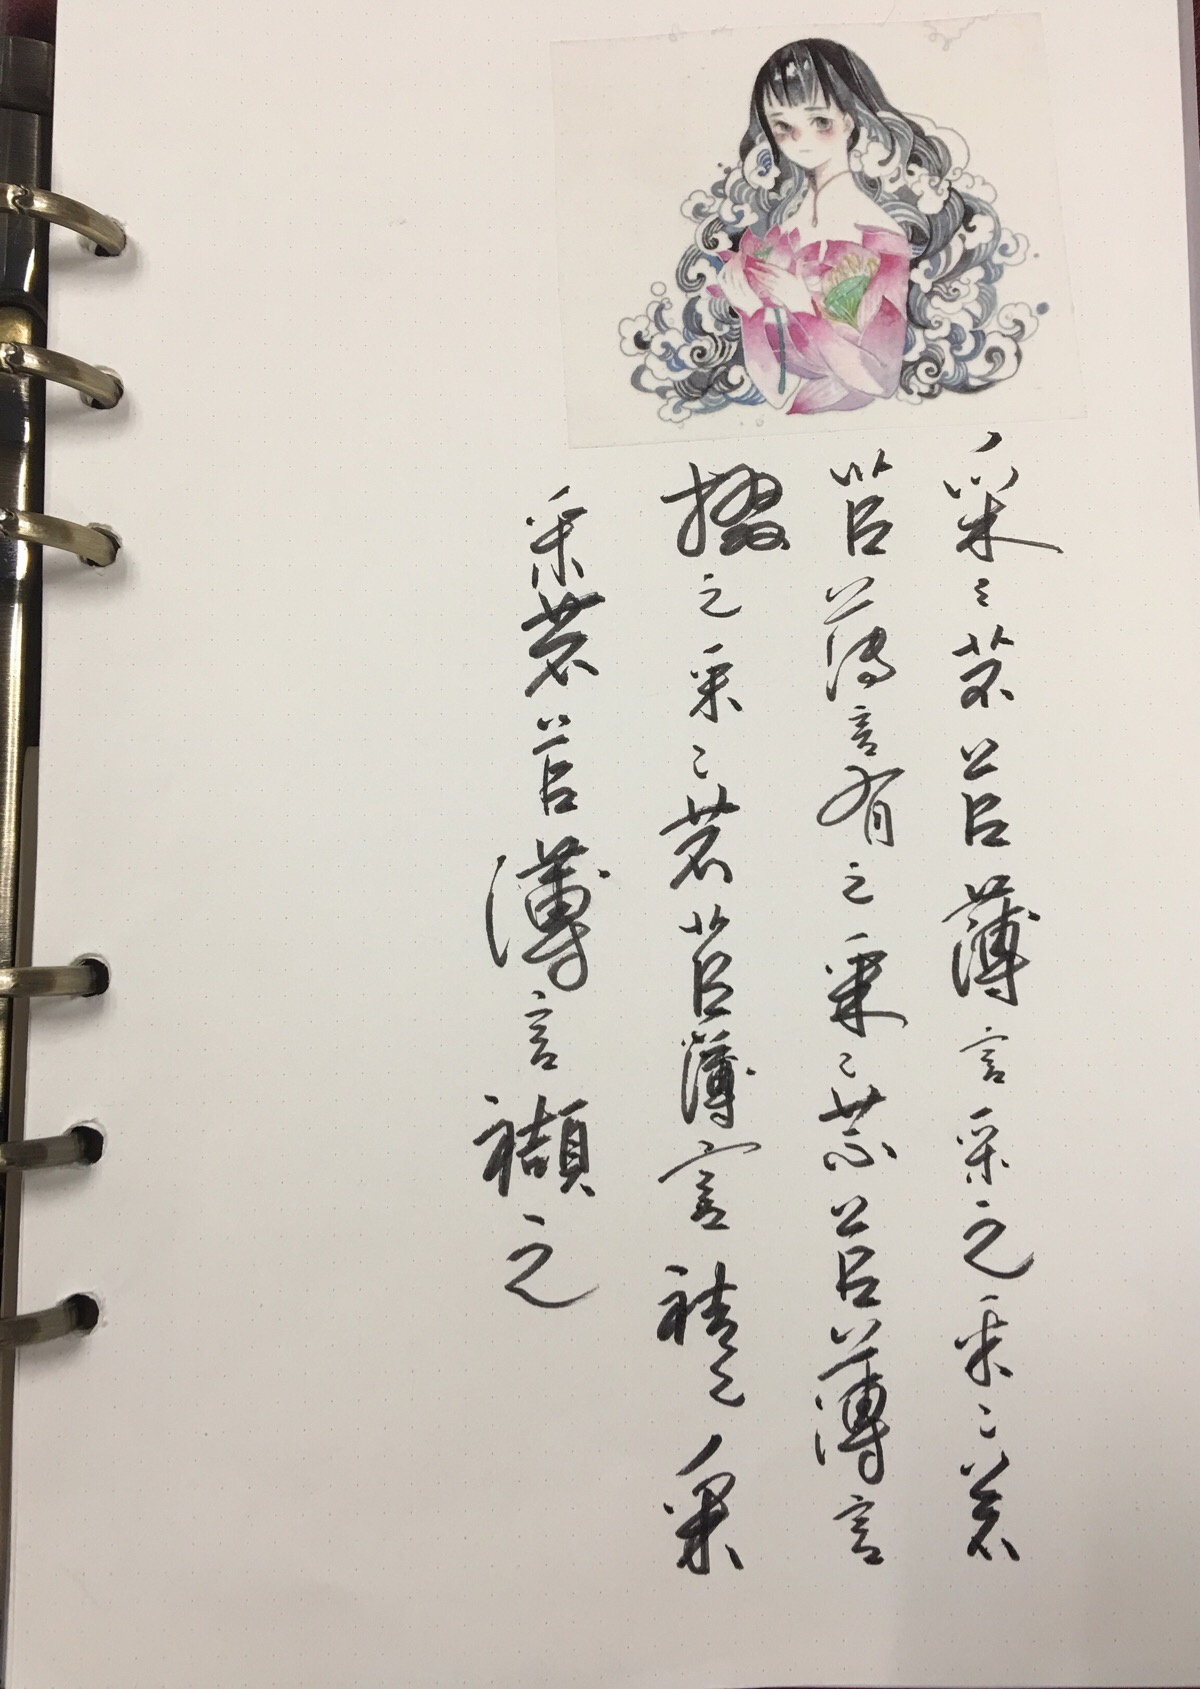 采々芣苢薄言采之采々芣
苢薄言有之采々芣苢薄言
掇之采々芣苢薄言袺之采
采芣苢薄言襭之